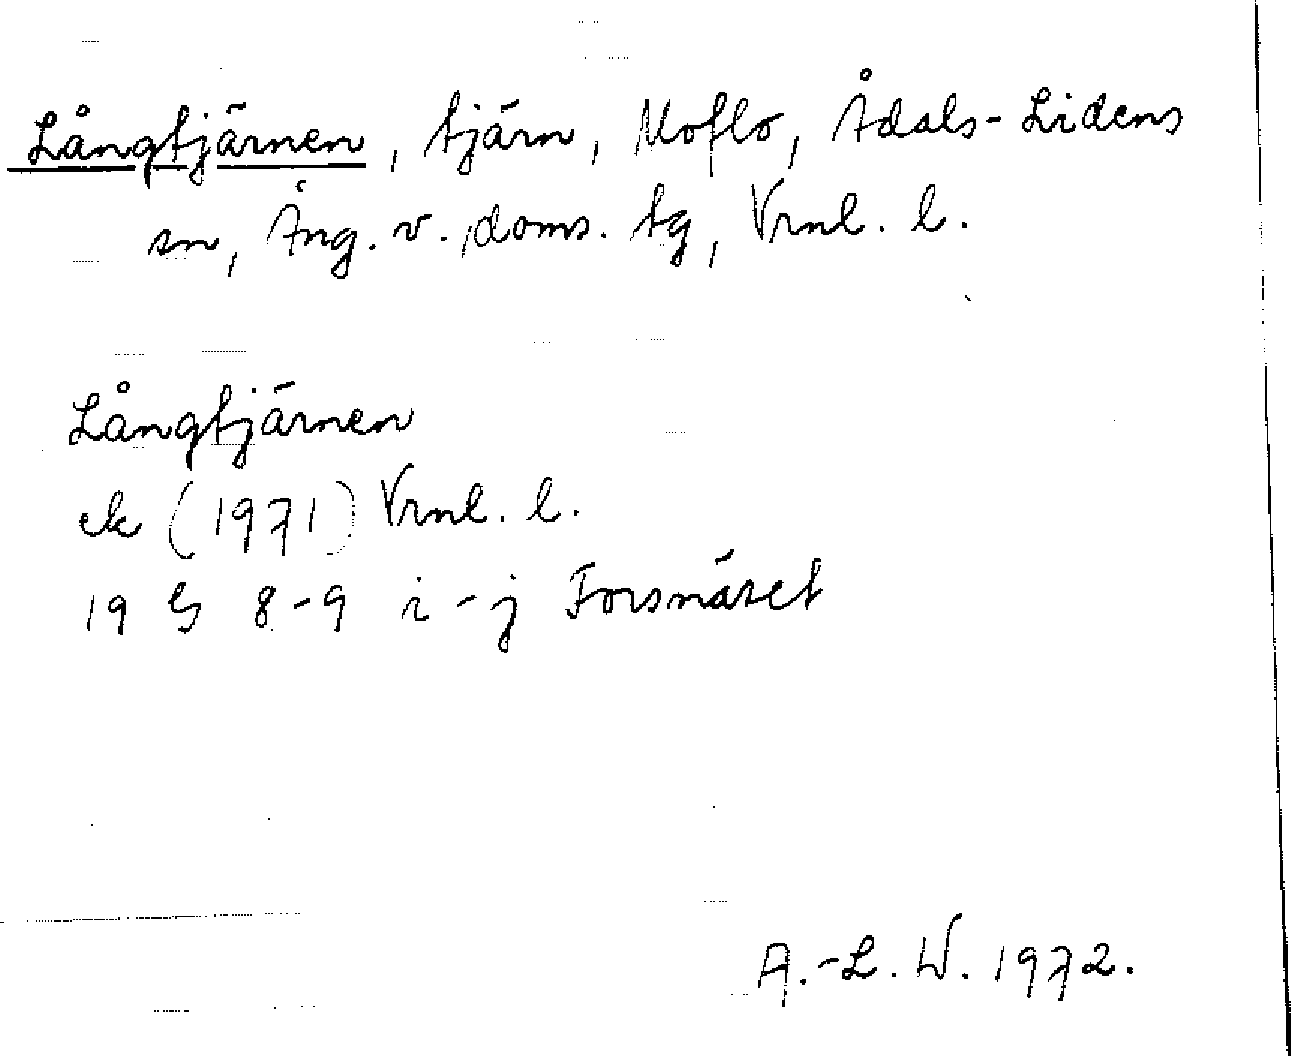 Långtjärnen, tjärn, Moflo, Ådals-Lidens
sn, Ång. v. doms. tg, Vrnl. l.
Långtjärnen
ek (1971) Vrnl. l.
19 G 8-9 i-j Forsnäset
A.-L. W. 1972.